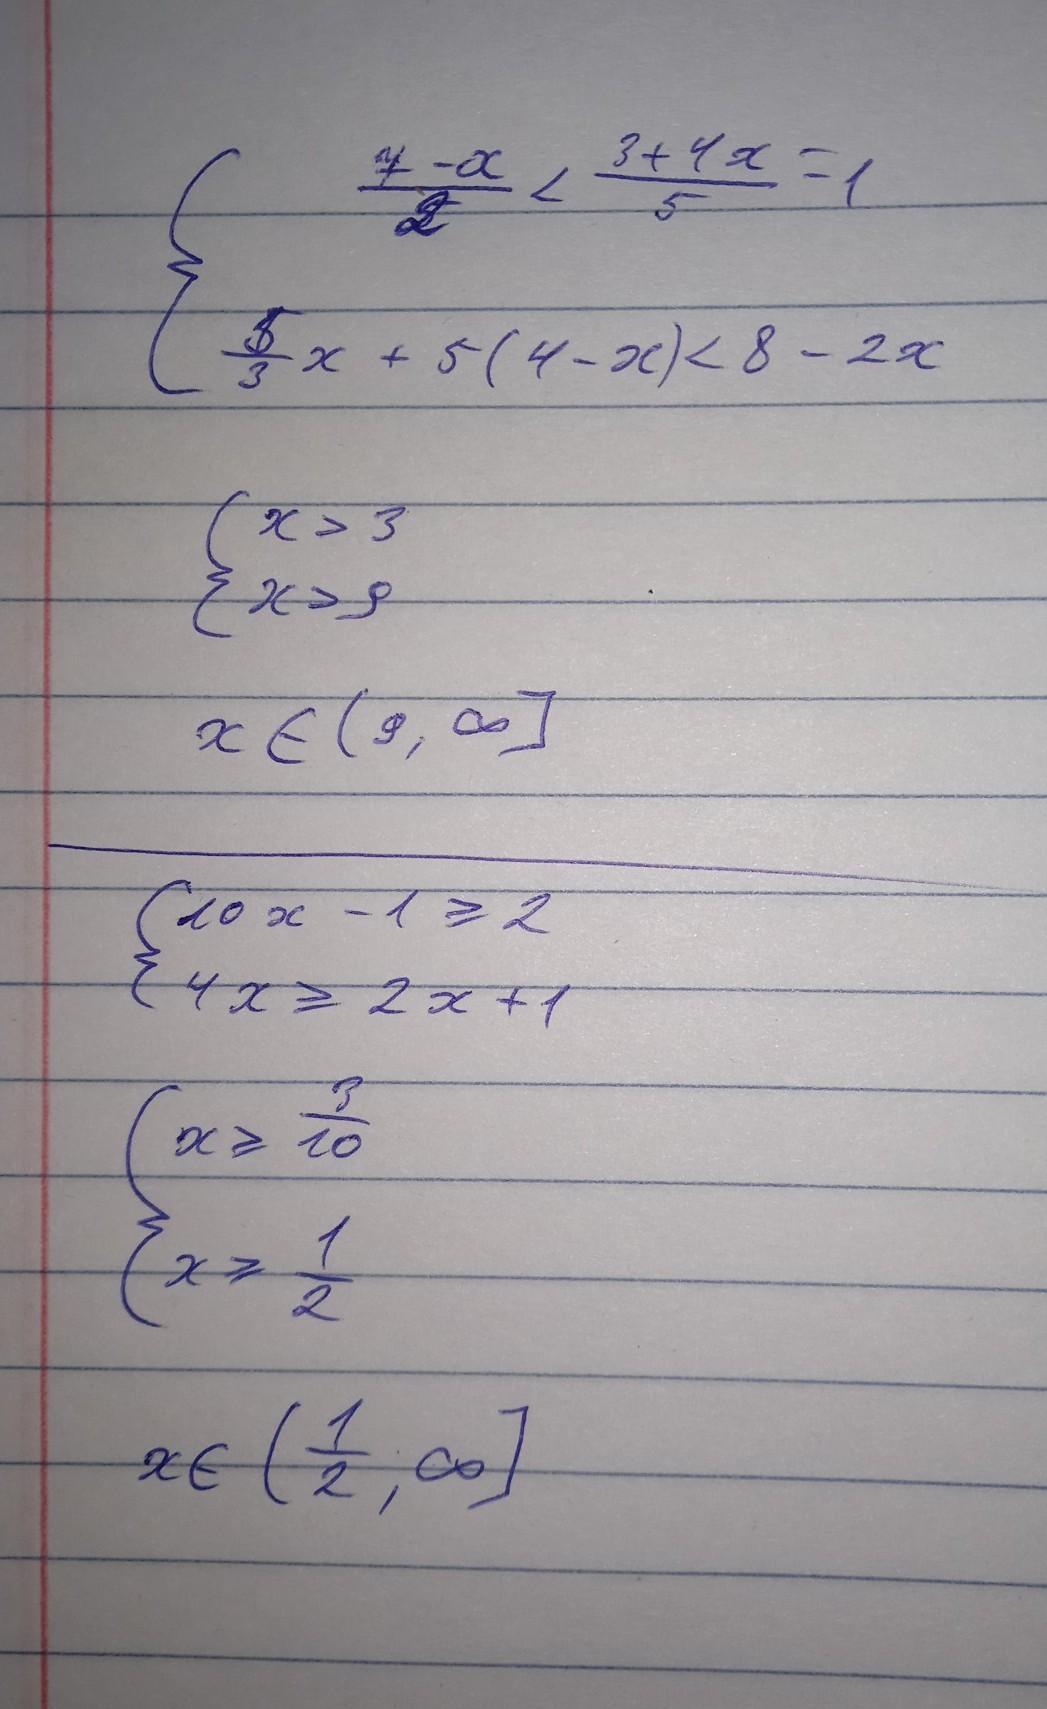 { (7-x)/2 < (3+4x)/5 = 1
5/3 x + 5(4-x) < 8 - 2x
{ x > 3
x > 9
x ∈ (9, ∞]
{ 10x - 1 ≥ 2
4x ≥ 2x + 1
{ x ≥ 3/10
x ≥ 1/2
x ∈ (1/2, ∞]